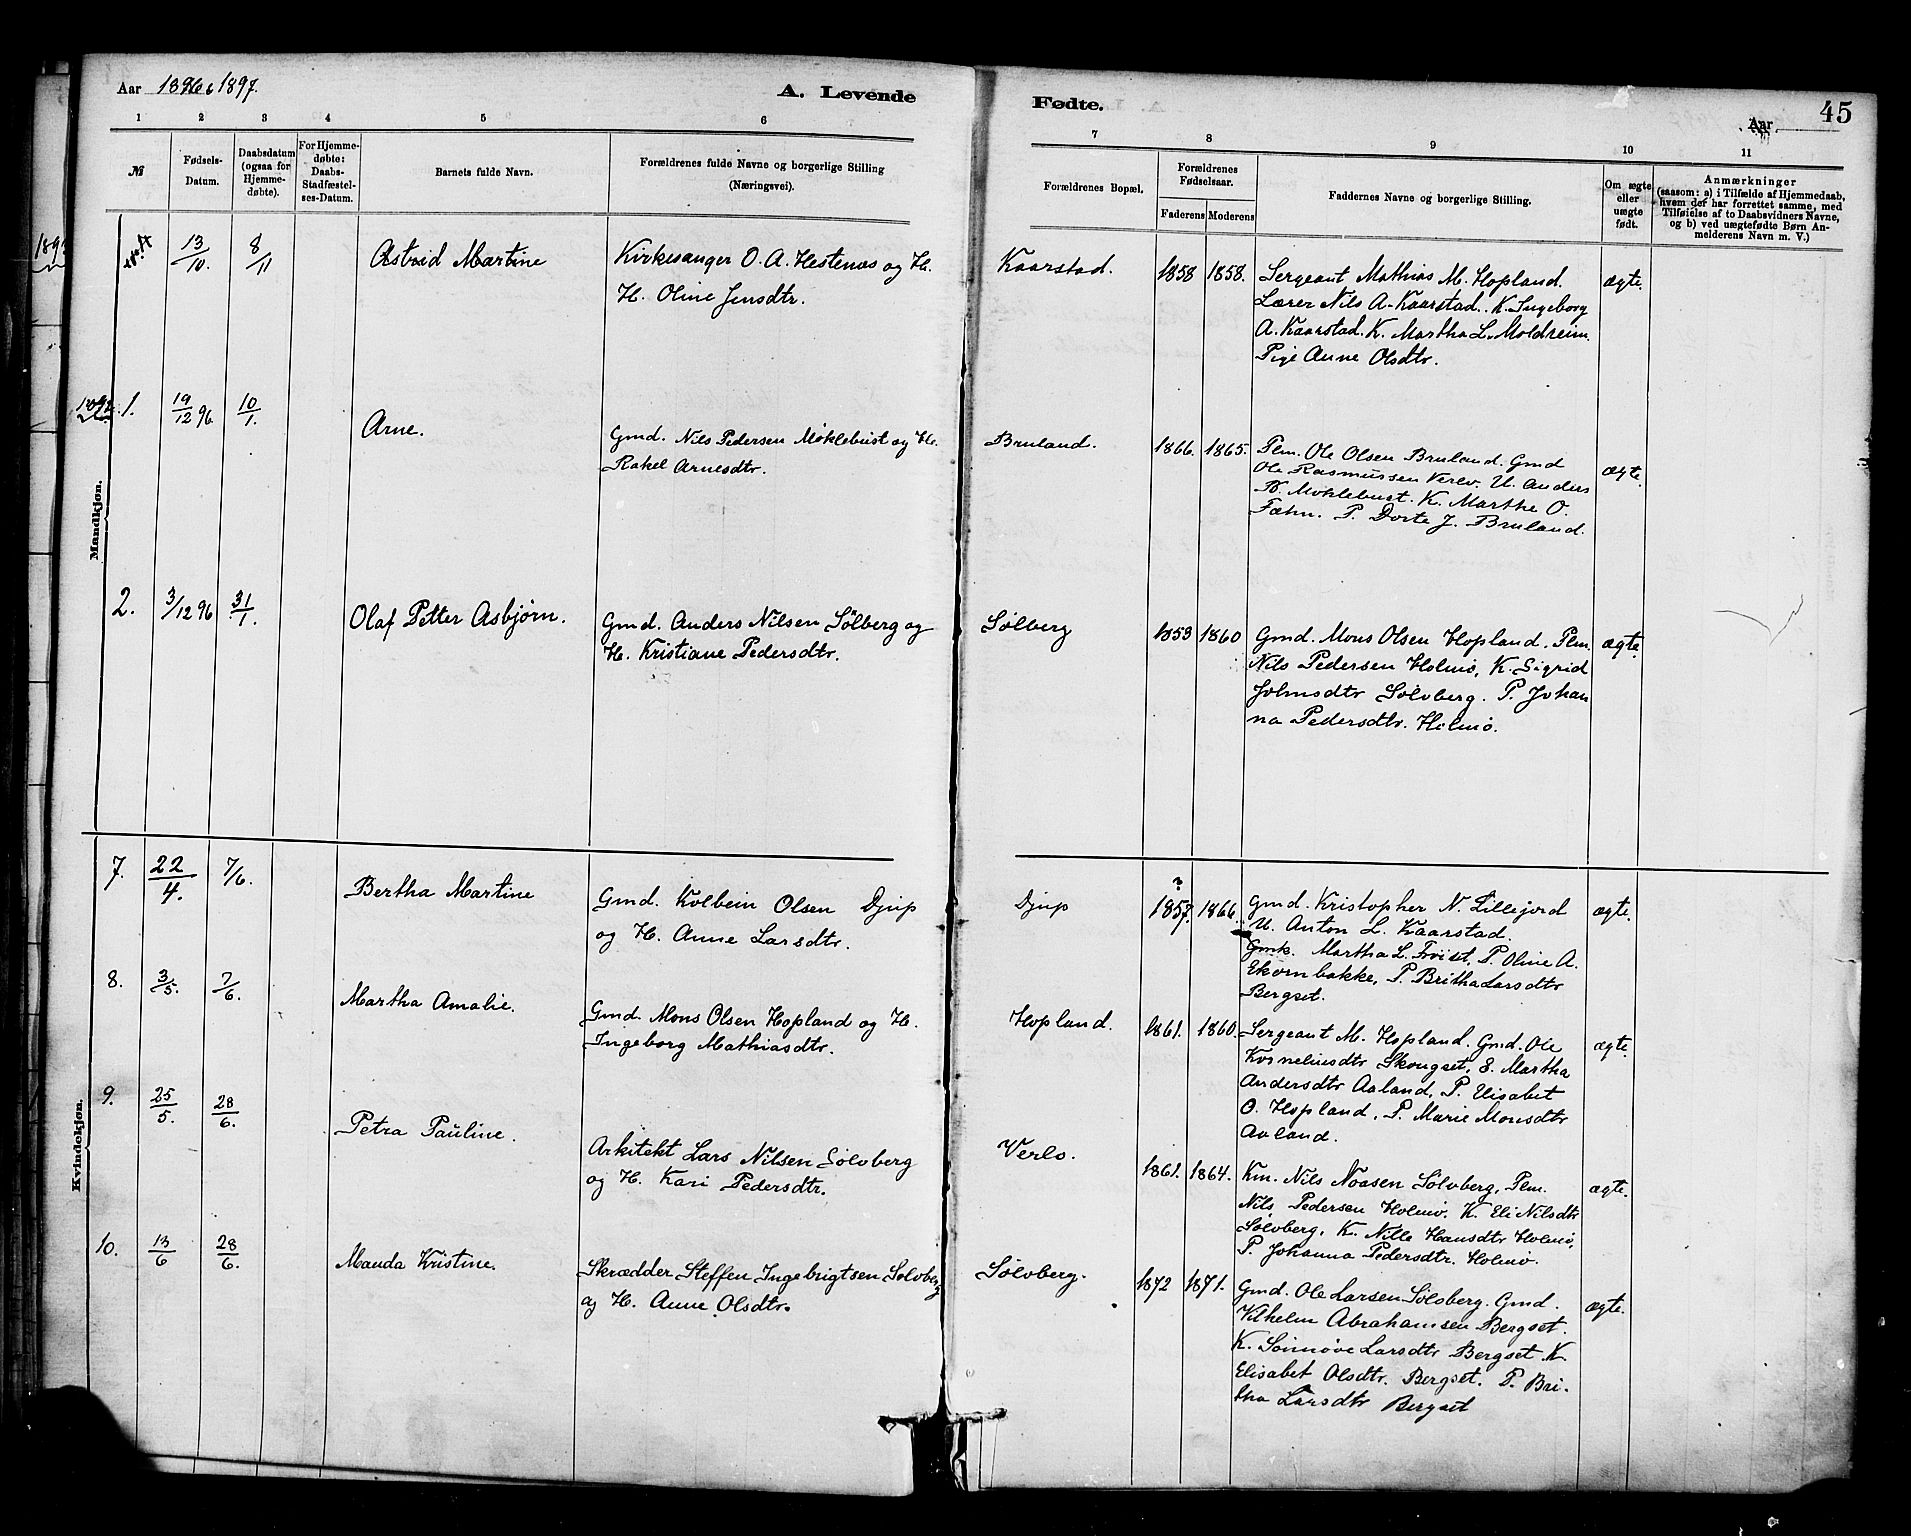 Aar 1896 1897.
A. Levende
Fødte.
45
Aar
1 2 3 4 5 6 7 8 9 10 11
№
Fødsels-Datum.
Daabsdatum (ogsaa for Hjemme-døbte).
For Hjemme-døbte: Daabs-Stadfæstel-ses-Datum.
Barnets fulde Navn.
Forældrenes fulde Navne og borgerlige Stilling
(Næringsvei).
Forældrenes Bopæl.
Forældrenes Fødselsaar.
Faderens Moderens
Faddernes Navne og borgerlige Stilling.
Om ægte eller uægte født.
Anmærkninger
(saasom: a) i Tilfælde af Hjemmedaab,
hvem der har forrettet samme, med
Tilføielse af to Daabsvidners Navne,
og b) ved uægtefødte Børn An-
melderens Navn m. V.)
13/10. 8/11 Astrid Martine Kirkesanger O. A. Hestenæs og H. Kaarstad. 1858 1858. Sergeant Mathias M. Hopland. ægte.
H. Oline Jensdtr. Lærer Nils A. Kaarstad. K. Ingeborg
A. Kaarstad. K. Martha L. Moldreim.
Pige Anne Olsdtr.
Mandkjøn.
1. 19/12 96 10/1. Arne. Gmd. Nils Pedersen Møklebust og H. Bruland. 1866. 1865. Plm. Ole Olsen Bruland. Gmd ægte.
Rakel Arnesdtr. Ole Rasmussen Verlo. U. Anders
P. Moklebust. K. Marthe O.
Fæhn. P. Dorte J. Bruland.
2. 3/12 96 31/1. Olaf Petter Asbjørn. Gmd. Anders Nilsen Sölberg og Sølberg 1853 1860 Gmd. Mons Olsen Hopland. Plm. ægte.
H. Kristiane Pedersdtr. Nils Pedersen Holmø, K. Sigrid
Johnsdtr Sølvberg. P. Johan
na Pedersdtr. Holmø.
Kvindekjøn.
7. 22/4. 7/6. Bertha Martine Gmd. Kolbein Olsen Djup Djup ? 1857. 1866. Gmd. Kristopher N. Lillejord ægte.
og H. Anne Larsdtr. U. Anton L. Kaarstad.
Gmk. Martha L. Frøiset, P. Oline A.
Ekornbakke, P. Britha Larsdtr
Bergset.
8. 3/5. 7/6. Martha Amalie. Gmd. Mons Olsen Hopland og H. Hopland. 1861. 1860. Sergeant M. Hopland. Gmd. Ole ægte.
Ingeborg Mathiasdtr. Korneliusdtr Skougset, E. Martha
Andersdtr Aaland, P. Elisabet
O. Hopland, P. Marie Monsdtr
Aaland.
9. 25/5. 28/6. Petra Pauline. Arkitekt Lars Nilsen Sølvberg Verlo. 1861. 1864. Km. Nils Noasen Sølvberg, Plm. ægte.
og H. Kari Pedersdtr. Nils Pedersen Holmø. K. Eli Nilsdtr
Sølvberg, K. Nille Hansdtr Holmø,
P. Johanna Pedersdtr. Holmø.
10. 13/6 28/6. Manda Kristine. Skrædder Steffen Ingebrigtsen Solvberg Sølvberg. 1872 1871. Gmd. Ole Larsen Sølvberg. Gmd. ægte.
og H. Anne Olsdtr. Vilhelm Abrahamsen Bergset.
K. Sünnøve Larsdtr Bergset K.
Elisabet Olsdtr. Bergset. P. Bri-
tha Larsdtr Bergset